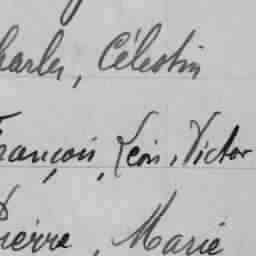 Charles, Célestin
François, Léon, Victor
Pierre, Marie